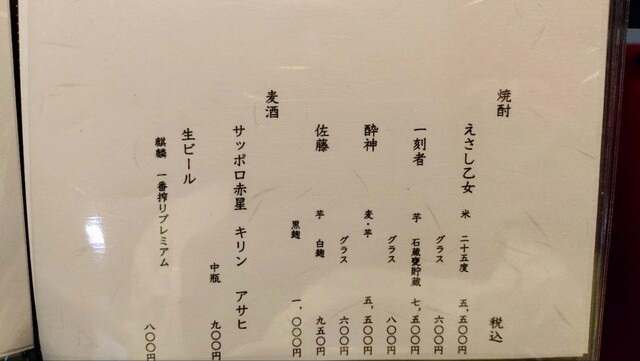 焼酎 税込
えさし乙女 米 二十五度 五、五〇〇円
グラス 六〇〇円
一刻者 芋 石蔵甕貯蔵 七、五〇〇円
グラス 八〇〇円
酔神 麦・芋 五、五〇〇円
グラス 六〇〇円
佐藤 芋 白麹 九五〇円
黒麹 一、〇〇〇円
麦酒
サッポロ赤星 キリン アサヒ
中瓶 九〇〇円
生ビール
麒麟 一番搾りプレミアム 八〇〇円